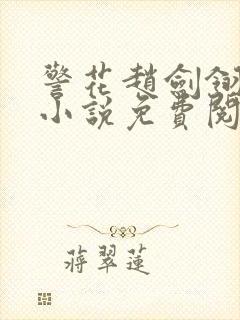 警花趙劍翎
小說免費閱
蔣翠蓮